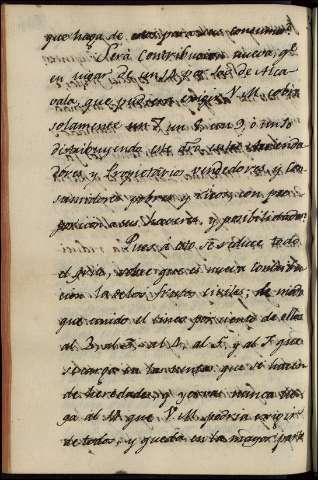 que haga de estos para su consumo.
Será contribucion nueva, qe
en lugar de un 14 por 100 de Alca
vala que pudiera exigir V. M. cobre
solamente un 7 un 8 un 9, ó un 10
distribuyendo este dro entre
dores y Propietarios vendedores y Con
sumidores pobres y ricos, con pro
porcion a sus haveres, y posibilidades.
Pues a esto se reduce todo
el grito, sobre que es nueva contribu
cion la de los frutos civiles; de modo
que unido el cinco por ciento de ellos
al 2, al 3, al 4, al 5, y al 7 que
se carga en la ventas que se hacen
de heredades, y yervas nunca lle
ga al 14 que V. M. podria exigir
de todos, y queda en la mayor parte